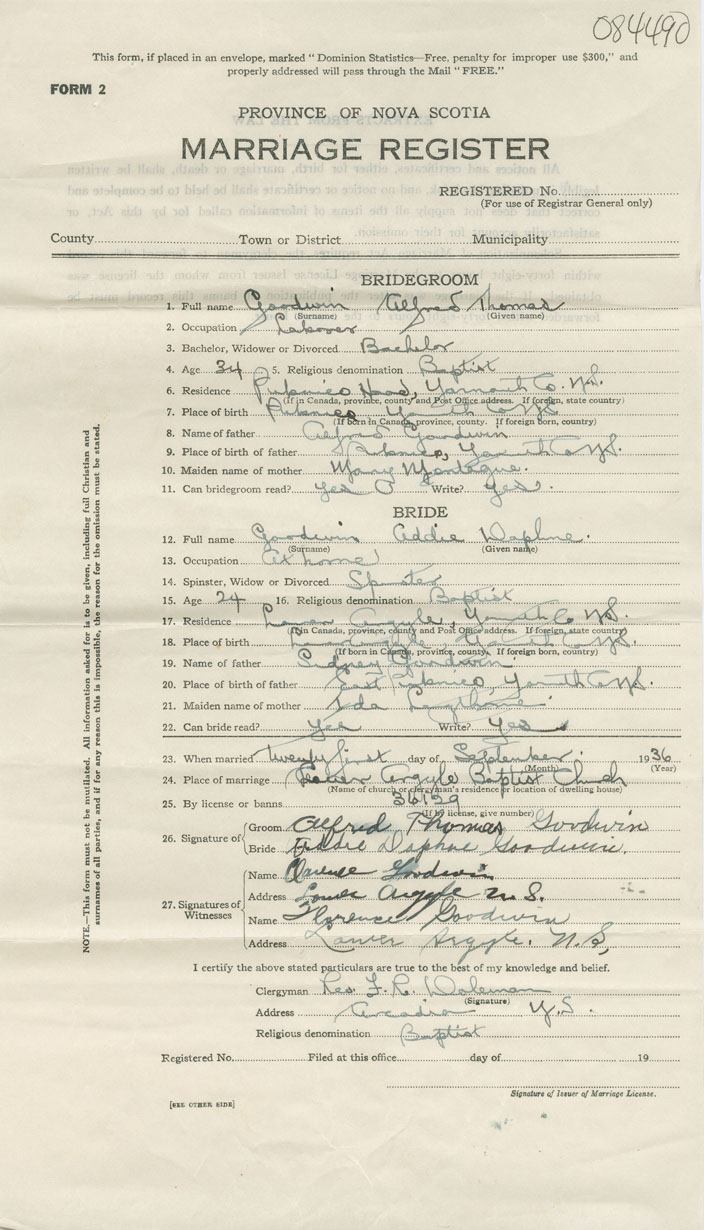 084490
This form, if placed in an envelope, marked "Dominion Statistics—Free, penalty for improper use $300," and
properly addressed will pass through the Mail "FREE."
FORM 2
PROVINCE OF NOVA SCOTIA
MARRIAGE REGISTER
REGISTERED No.
(For use of Registrar General only)
County Town or District Municipality
BRIDEGROOM
1. Full name Goodwin Alfred Thomas
(Surname) (Given name)
2. Occupation
3. Bachelor, Widower or Divorced Bachelor
4. Age 34 5. Religious denomination Baptist
6. Residence Pubnico Head, Yarmouth Co. N.S.
(If in Canada, province, county and Post Office address. If foreign, state country)
7. Place of birth Pubnico Yarmouth Co N.S.
(If born in Canada, province, county. If foreign born, country)
8. Name of father Alfred Goodwin
9. Place of birth of father Pubnico, Yarmouth Co N.S.
10. Maiden name of mother Mary Montague.
11. Can bridegroom read? yes Write? yes.
BRIDE
12. Full name Goodwin Addie Daphne.
(Surname) (Given name)
13. Occupation At home
14. Spinster, Widow or Divorced Spinster
15. Age 24 16. Religious denomination Baptist
17. Residence Lower Argyle, Yarmouth Co N.S.
(If in Canada, province, county and Post Office address. If foreign, state country)
18. Place of birth Lower Argyle Yarmouth Co N.S.
(If born in Canada, province, county. If foreign born, country)
19. Name of father Sidney Goodwin.
20. Place of birth of father East Pubnico, Yarmouth Co N.S.
21. Maiden name of mother Ida
22. Can bride read? Yes Write? Yes
23. When married Twenty first day of September. 1936
(Month) (Year)
24. Place of marriage Lower Argyle Baptist Church
(Name of church or clergyman's residence or location of dwelling house)
25. By license or banns 36129
(If by license, give number)
26. Signature of Groom Alfred Thomas Goodwin
Bride Addie Daphne Goodwin.
27. Signatures of Witnesses
Name Clarence Goodwin
Address Lower Argyle N.S.
Name Florence Goodwin
Address Lower Argyle. N.S,
I certify the above stated particulars are true to the best of my knowledge and belief.
Clergyman Rev. F. R.
(Signature)
Address Arcadia N.S.
Religious denomination Baptist
Registered No. Filed at this office day of 19
Signature of Issuer of Marriage License.
[SEE OTHER SIDE]
NOTE.—This form must not be mutilated. All information asked for is to be given, including full Christian and
surnames of all parties, and if for any reason this is impossible, the reason for the omission must be stated.